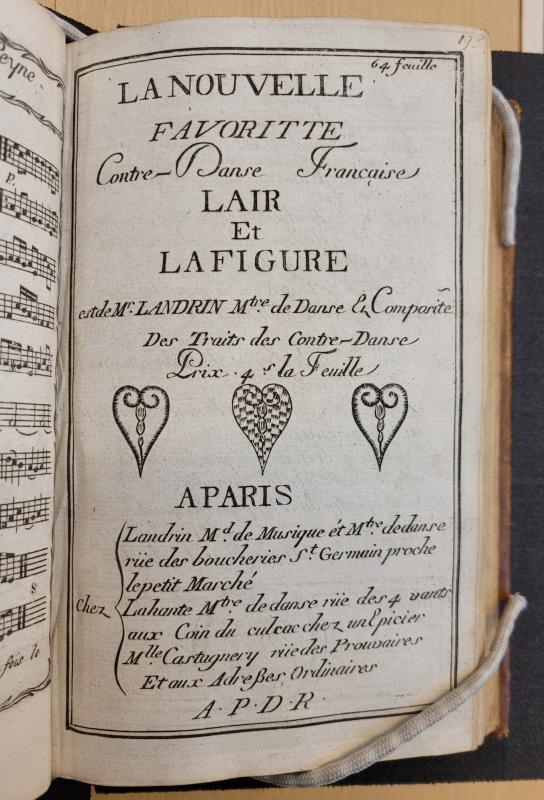 eyne
P.
S
fois le
19
64 feuille
LA NOUVELLE
FAVORITTE
Contre-Danse Française
LAIR
Et
LAFIGURE
est de Mr. LANDRIN Mtre. de Danse & Composite
Des Traits des Contre-Danse
Prix . 4 s la Feuille
A PARIS
Landrin Md. de Musique ét Mtre. de danse
rüe des boucheries St. Germain proche
le petit Marché
chez
Lahante Mtre. de danse rüe des 4 vants
aux Coin du culcac chez un Epicier
Mlle Castugnery rüe des Prouvaires
Et aux Adreßes Ordinaires
A . P . D . R .